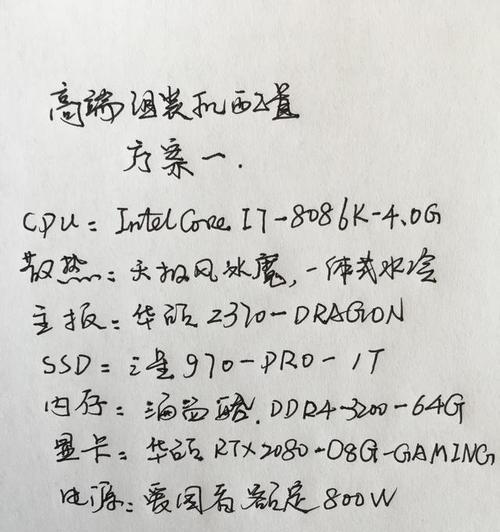 高端组装机配置
方案一.
CPU: Intel Core I7-8086K-4.0G
散热: 天极风冰魔, 一体式水冷
主板: 华硕 Z370-DRAGON
SSD: 三星970-PRO-1T
内存: 海盗船.DDR4-3200-64G
显卡: 华硕 RTX2080-O8G-GAMING
电源: 爱国者额定800W